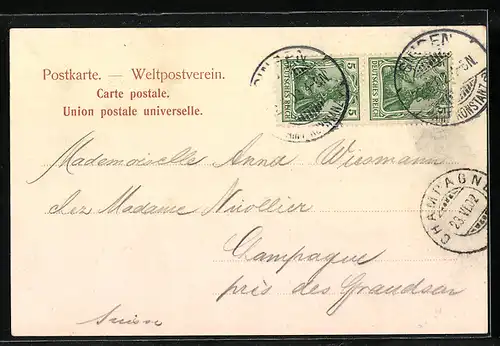 Postkarte. — Weltpostverein.
Carte postale.
Union postale universelle.
DEUTSCHES REICH
5
5
DEUTSCHES REICH
5
INGEN
CHAMPAGNE
23.VI.02
Mademoiselle Anna Wissmann
chez Madame Nicollier
Champagne
près des Grandson
Suisse